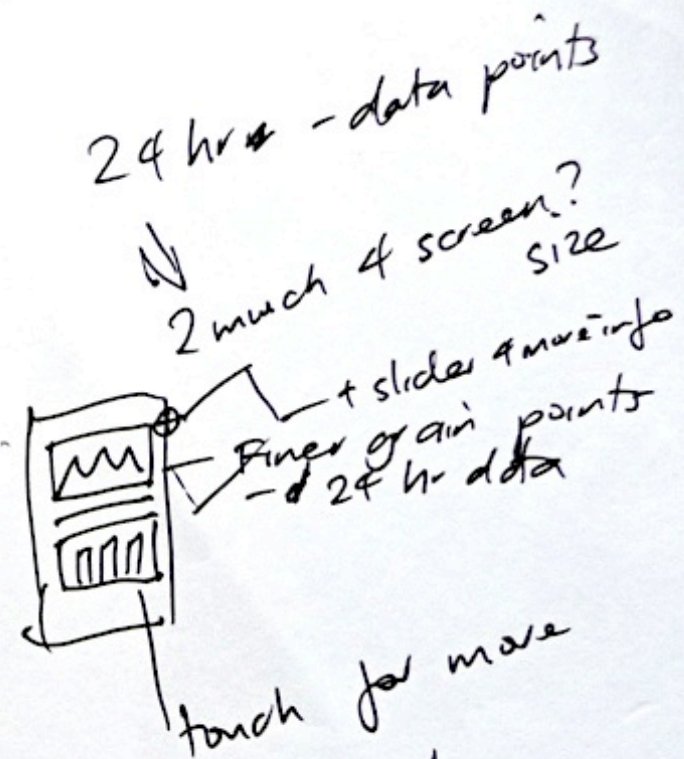 24 hr - data points
2 much 4 screen?
size
+ slider 4 more info
Finer grain points
- 24 hr data
touch for more